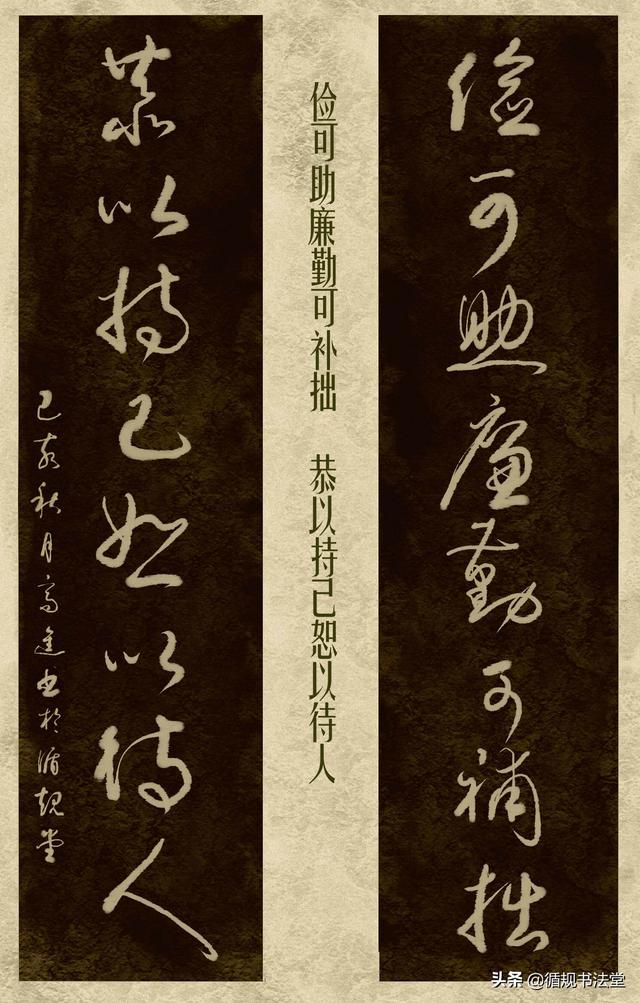 俭可助廉勤可补拙
俭可助廉勤可補拙
恭以持己恕以待人
恭以持己恕以待人
己亥秋月高進书於循规堂
头条 @循规书法堂